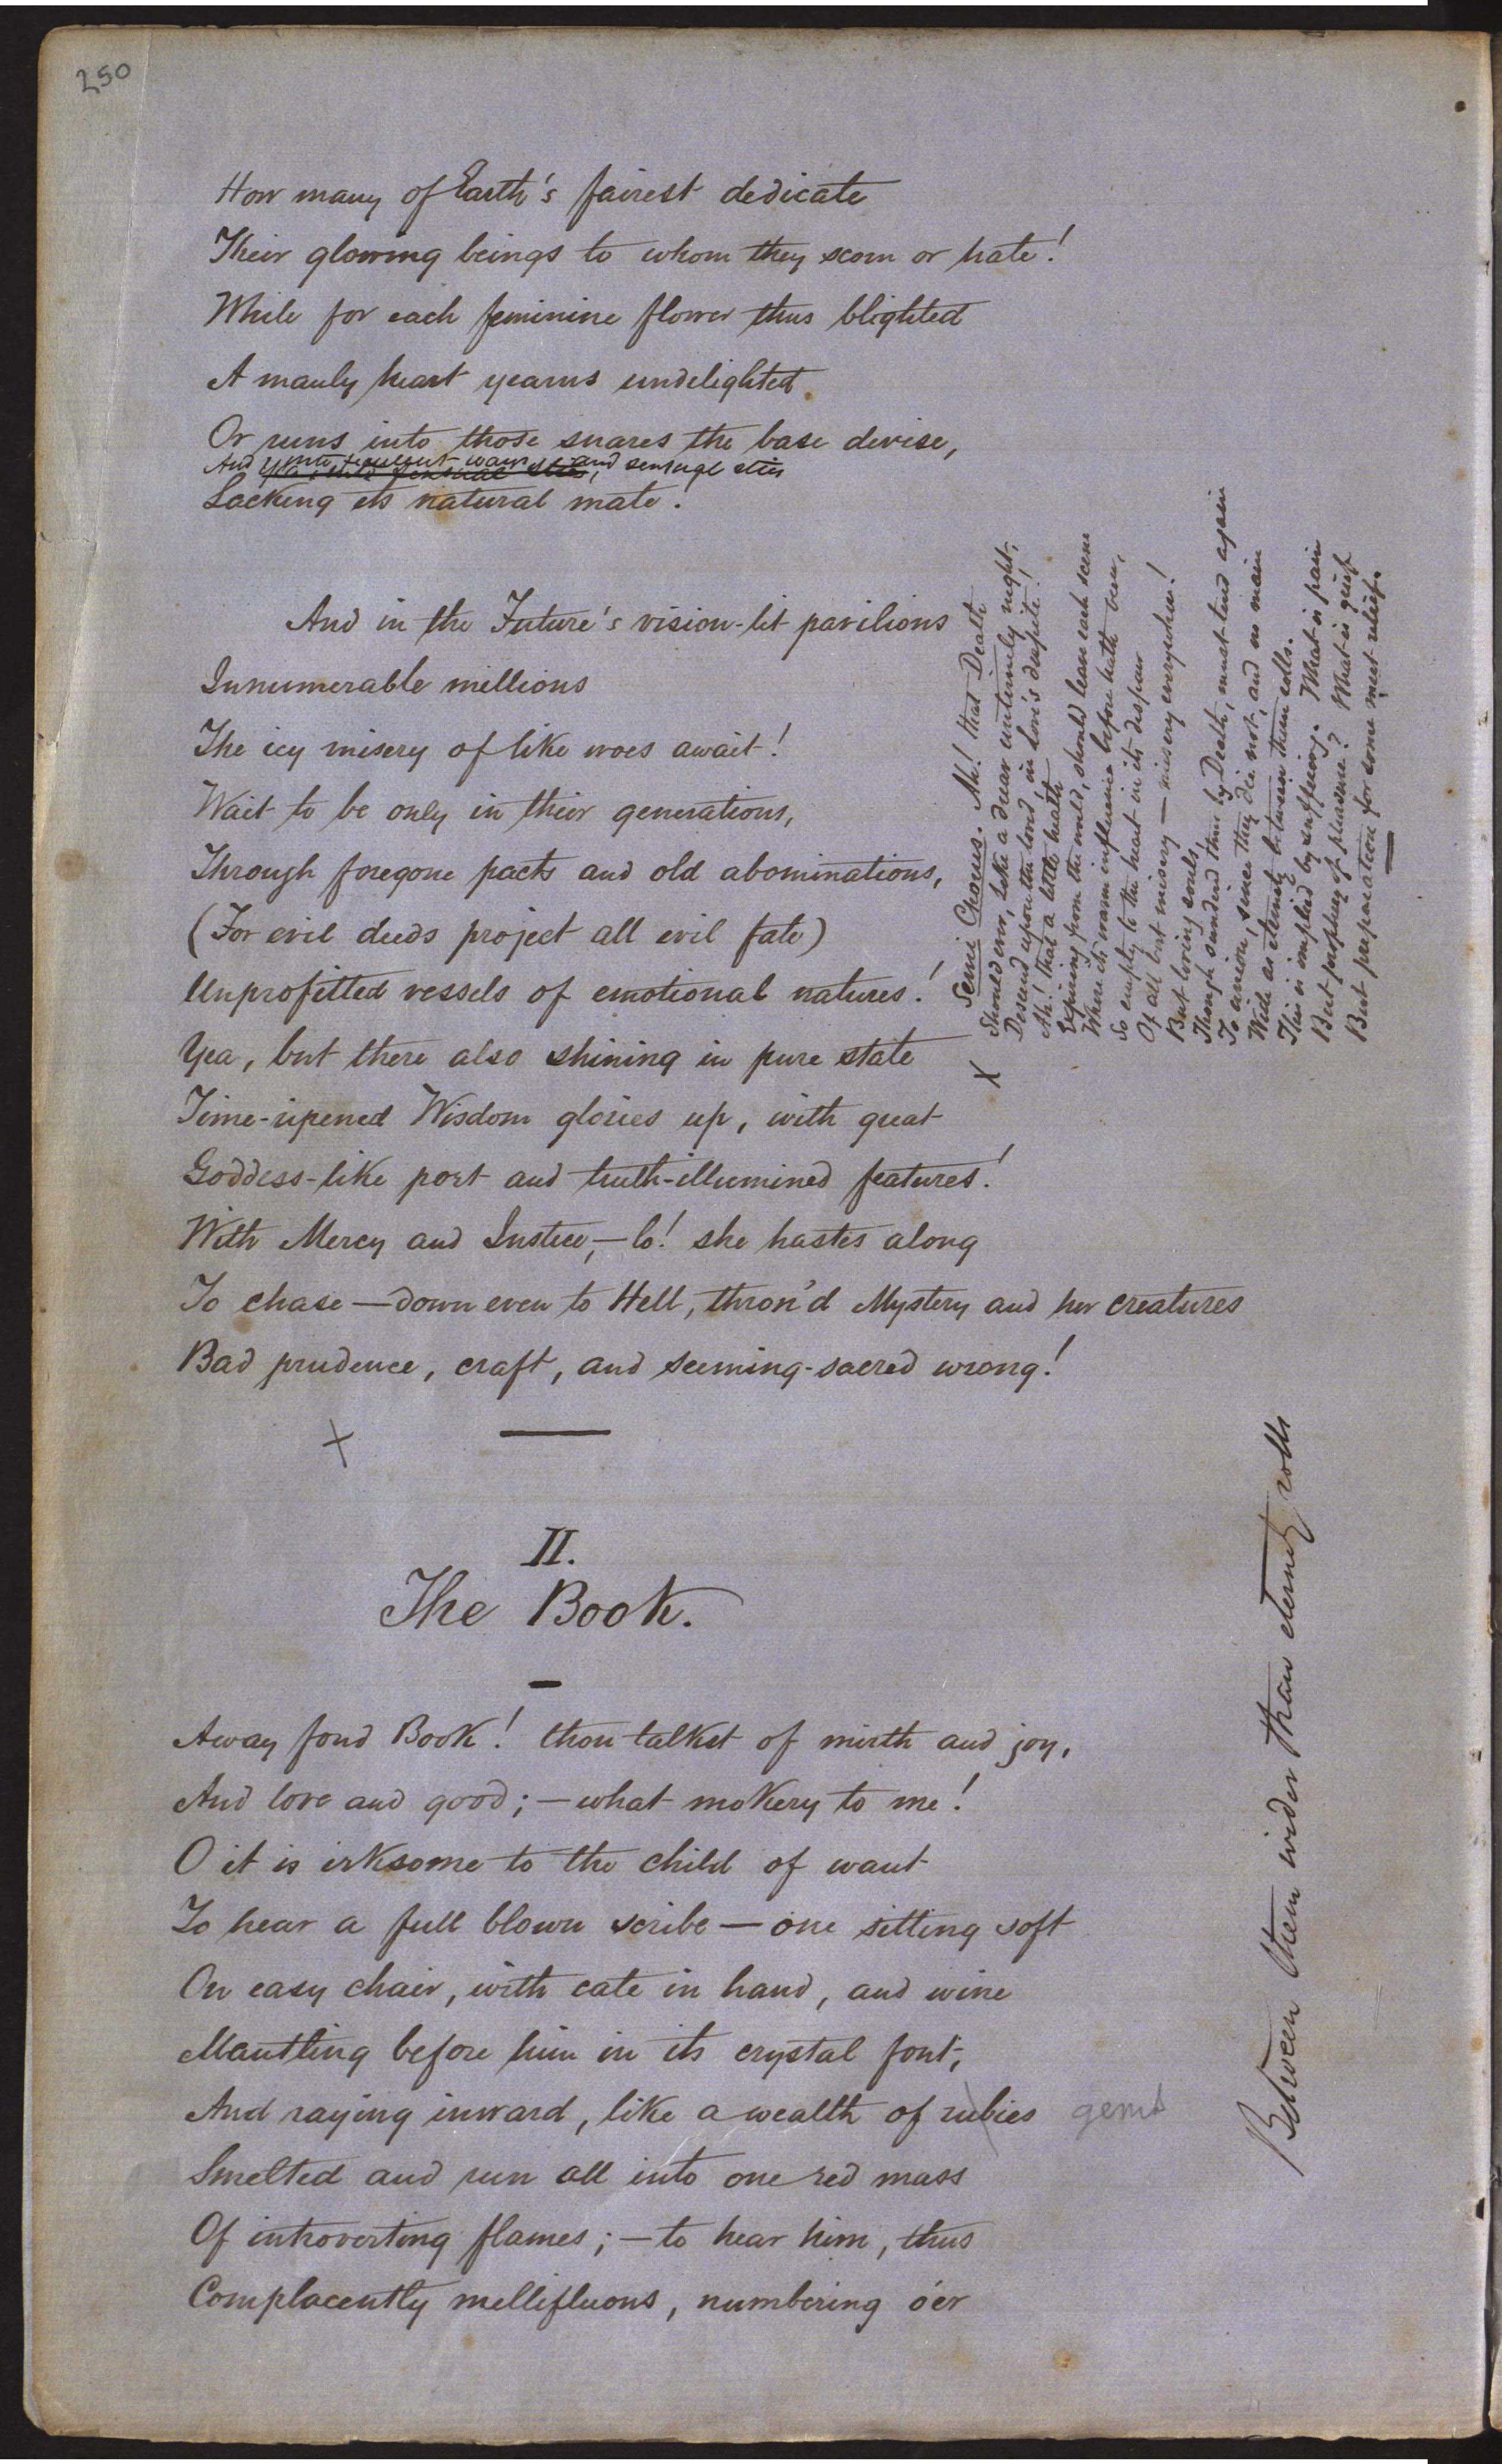 250
How many of Earth's fairest dedicate
Their glowing beings to whom they scorn or hate!
While for each feminine flower thus blighted
A manly heart yearns undelighted
Or runs into those snares the base devise,
And and sensual sties
Lacking its natural mate!
And in the Future's vision-lit pavilions
Innumerable millions
The icy misery of like woes await!
Wait to be only in their generations,
Through foregone pacts and old abominations,
(For evil deeds project all evil fate)
Unprofitted vessels of emotional natures!
Yea, but there also shining in pure state
Time-ripened Wisdom glories up, with great
Goddess-like port and truth-illumined features!
With Mercy and Justice,—lo! she hastes along
To chase—down even to Hell, thron'd Mystery and her creatures
Bad prudence, craft, and seeming-sacred wrong!
X
X Semi Chorus. Ah! that Death
Should ever, like a drear untimely night,
Descend upon the lov'd, in love's despite!
Ah! that a little heath
Expiring from the world, should leave each scene
Where its warm influence before hath been,
So empty to the heart in its despair
Of all but misery — misery everywhere!
But loving souls,
Though sunder'd thus by Death, must tend again
To union, since they die not, and no main
Wide as eternity between them rolls.
This is implied by suffering. What is pain
But prophecy of pleasure? What is grief
But preparation for some meet relief.
Between them wider than eternity rolls
II.
The Book.
Away fond Book! thou talkst of mirth and joy,
And love and good;—what mokery to me!
O it is irksome to the child of want
To hear a full blown scribe — one sitting soft
On easy chair, with cate in hand, and wine
Mantling before him in its crystal font,
And raying inward, like a wealth of rubies gems
Smelted and run all into one red mass
Of introverting flames;—to hear him, thus
Complacently mellifluous, numbering o'er